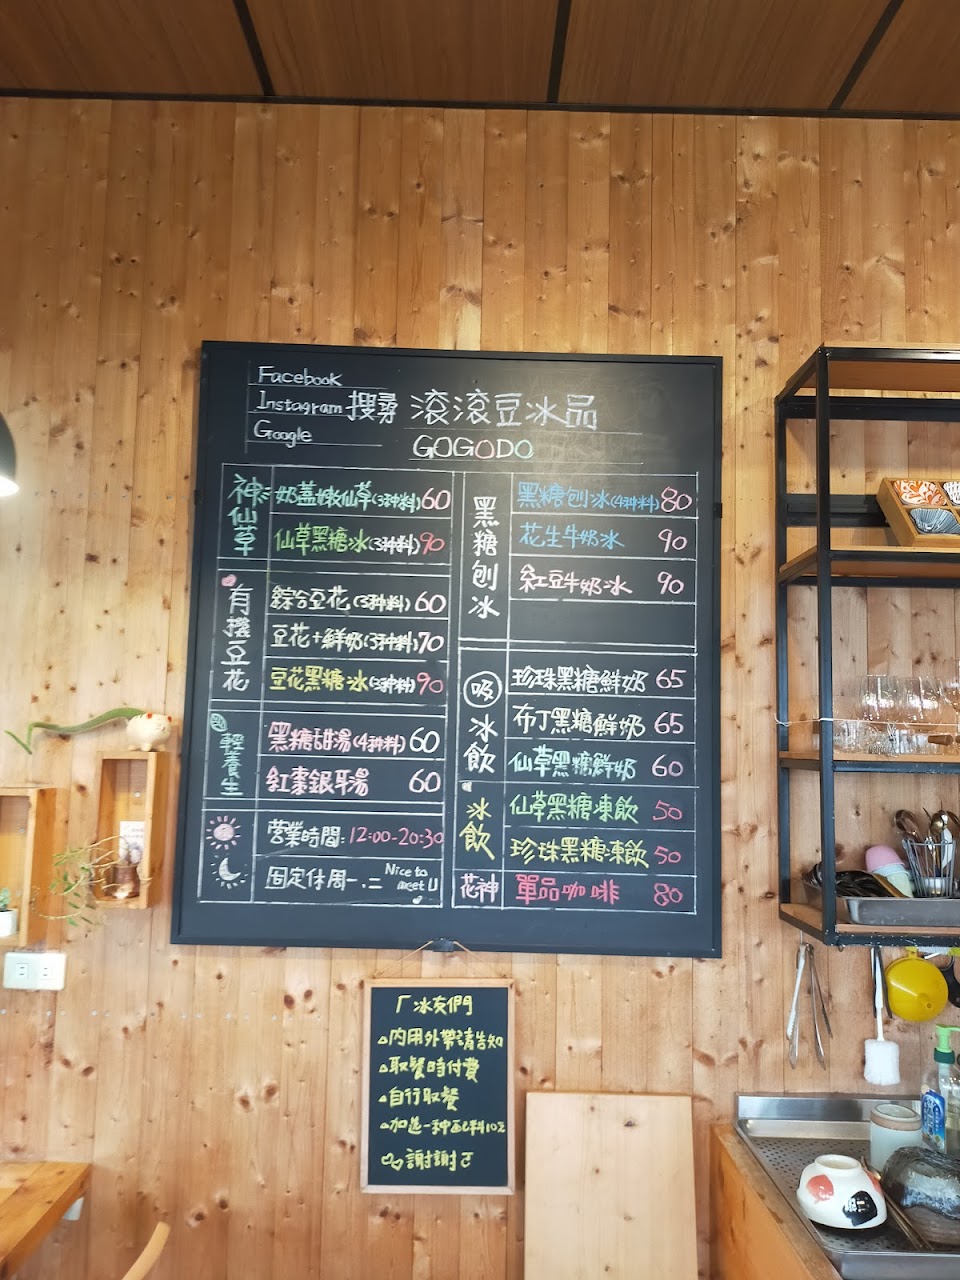 Facebook
Instagram 搜尋 滾滾豆冰品
Google
GOGODO
神仙草
奶蓋嫩仙草(3种料) 60
仙草黑糖冰(3种料) 90
有機豆花
綜合豆花(3种料) 60
豆花+鮮奶(3种料) 70
豆花黑糖冰(3种料) 90
輕養生
黑糖甜湯(4种料) 60
紅棗銀耳湯 60
营業時間:12:00-20:30
固定休周一.二 Nice to
meet U
黑糖刨冰
黑糖刨冰(4种料) 80
花生牛奶冰 90
紅豆牛奶冰 90
吸冰飲
珍珠黑糖鮮奶 65
布丁黑糖鮮奶 65
仙草黑糖鮮奶 60
冰飲
仙草黑糖凍飲 50
珍珠黑糖凍飲 50
花神
單品咖啡 80
「冰友們
内用外帶請告知
取餐時付費
自行取餐
加選一种配料10元
謝謝